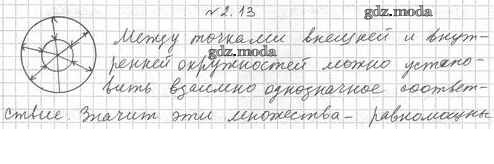 №2.13
gdz.moda
Между точками внешней и внут-
gdz.moda
ренней окружностей можно устано-
вить взаимно однозначное соответ-
ствие. Значит эти множества - равномощны